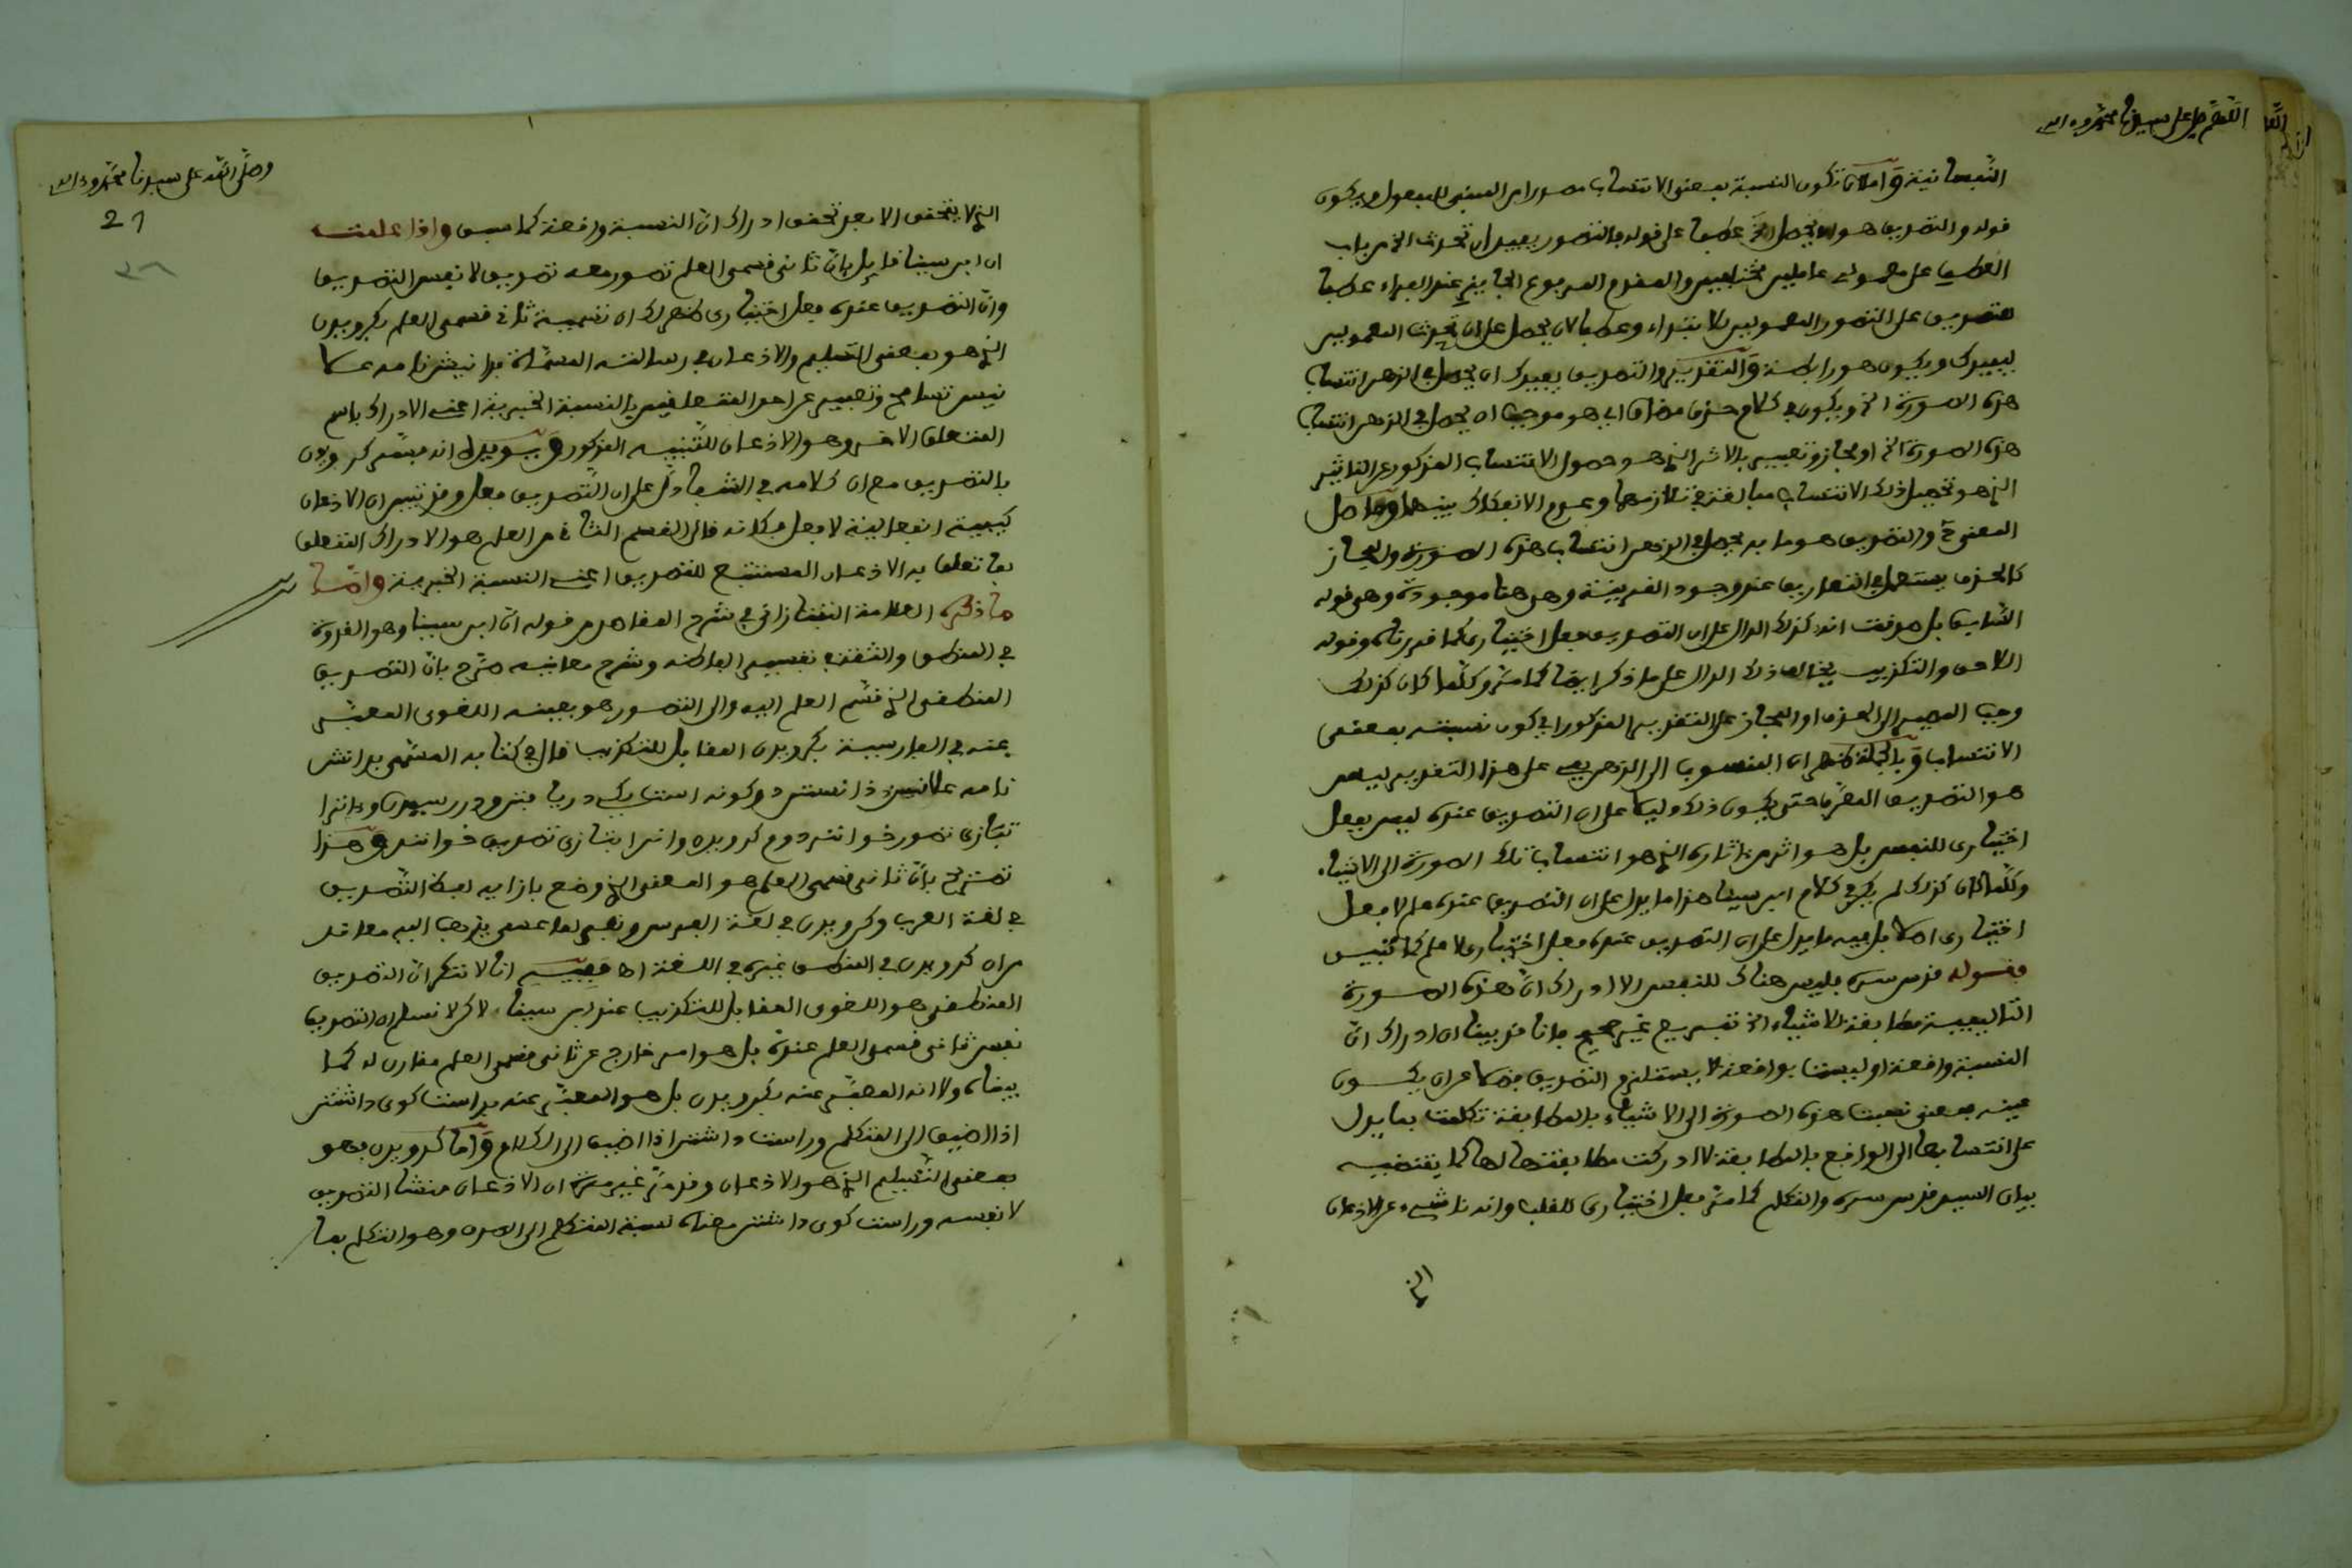 اللهم صل على سيدنا محمد وءاله
النفسانية واما لان تكون النسبة بمعنى الانتساب مصدرا من المبني للمفعول ويكون
قوله والتصديق هو ان يحصل الخ عطفا على قوله فالتصور يفيد ان تحدث الخ من باب
العطف على معمولي عاملين مختلفين والمقدم المرفوع الجايز عند الفراء عطفا
للتصديق على التصور المعمولين للابتداء وعطفا لان يحصل على ان تحدث المعمولين
ليفيدك ويكون هو رابطة والتقدير والتصديق يفيدك ان يحصل في الذهن انتساب
هذه الصورة الخ ويكون في كلام حذف مضاف اي هو موجب ان يحصل في الذهن انتساب
هذه الصورة الخ او مجاز وتعبير بالاثر الذي هو حصول الانتساب المذكور عن التاثير
الذي هو تحصيل ذلك الانتساب مبالغة في تلازمهما وعدم الانفكاك بينهما وحاصل
المعنى ح والتصديق هو ما به يحصل في الذهن انتساب هذه الصورة والمجاز
كالحذف يستعمل في التعاريف عند وجود القرينة وهي هنا موجودة وهي قوله
السابق بل صدقت انه كذلك الدال على ان التصديق فعل اختياري كما قررناه وقوله
اللاحق والتكذيب يخالف ذلك الدال على ما ذكر ايضا كما مر وكلما كان كذلك
وجب المصير الى الحذف او المجاز على التقدير المذكور اي كون نسبته بمعنى
الانتساب وبالجملة فظهر ان المنسوب الى الذهن على هذا التقدير ليس
هو التصديق المعرف حتى يكون ذلك دليلا على ان التصديق عنده ليس بفعل
اختياري للنفس بل هو اثر من اثاره الذي هو انتساب تلك الصورة الى الاشياء
وكلما كان كذلك لم يكن في كلام ابن سينا هذا ما يدل على ان التصديق عنده علم لا فعل
اختياري اصلا بل فيه ما يدل على ان التصديق عنده فعل اختياري لا علم كما تبين
وقوله قدس سره فليس هناك للنفس الا ادراك ان هذه الصورة
التاليفية مطابقة للاشياء الخ تفسير غير صحيح فانا قد بينا ان ادراك ان
النسبة واقعة او ليست بواقعة لا يستلزم التصديق فضلا عن ان يكون
عينه فمعنى نسبت هذه الصورة الى الاشياء بالمطابقة تكلمت بما يدل
على انتسابها الى الواقع بالمطابقة لا ادركت مطابقتها لها كما يقتضيه
بيان السيد قدس سره والتكلم كما مر فعل اختياري للقلب وانه ناشيء عن الاذعان
الذي
وصلى الله على سيدنا محمد وءاله
21
الذي لا يتحقق الا بعد تحقق ادراك ان النسبة واقعة كما سبق واذا علمت
ان ابن سينا قايل بان ثاني قسمي العلم تصور معه تصديق لا نفس التصديق
وان التصديق عنده فعل اختياري ظهر لك ان تسمية ثاني قسمي العلم بكرويدن
الذي هو بمعنى التسليم والاذعان في رسالته المسماة بدانش نامه علا
نيس تسامح وتعبير عن احد المتعلقين بالنسبة الخبرية اعني الادراك باسم
المتعلق الاخر وهو الاذعان للتنبيه المذكور ويويده انه فسر كرويدن
بالتصديق مع ان كلامه في الشفا دل على ان التصديق فعل وقد تبين ان الاذعان
كيفية انفعالية لا فعل فكانه قال القسم الثاني من العلم هو الادراك المتعلق
بما تعلق به الاذعان المستتبع للتصديق اعني النسبة الخبرية واما
ما ذكره العلامة التفتازاني في شرح المقاصد من قوله ان ابن سينا وهو القدوة
في المنطق والثقة في تفسير الفاظه وشرح معانيه صرح بان التصديق
المنطقي الذي قسم العلم اليه والى التصور هو بعينه اللغوي المعبر
عنه في الفارسية بكرويدن المقابل للتكذيب قال في كتابه المسمى بدانش
نامه علانيس دانستن دو كونه است يكي دريا فتن ودر رسيدن وءانرا
بتازي تصور خوانند دوم كرويدن وانرا بتازي تصديق خوانند وهذا
تصريح بان ثاني قسمي العلم هو المعنى الذي وضع بازايه لفظ التصديق
في لغة العرب وكرويدن في لغة الفرس ونفي لما عسى يذهب اليه معاند
من ان كرويدن في المنطق غيره في اللغة اه ففيه انا لا ننكر ان التصديق
المنطقي هو اللغوي المقابل للتكذيب عند ابن سينا لاكن لا نسلم ان التصديق
نفس ثاني قسمي العلم عنده بل هو امر خارج عن ثاني قسمي العلم مقارن له كما
بيناه ولا انه المعبر عنه بكرويدن بل هو المعبر عنه براست كوى داشتن
اذا اضيف الى المتكلم وراست داشتن اذا اضيف الى الكلام واما كرويدن فهو
بمعنى التسليم الذي هو الاذعان وقد مر غير مرة ان الاذعان منشا التصديق
لا نفسه وراست كوى داشتن معناه نسبة المتكلم الى الصدق وهو التكلم بما